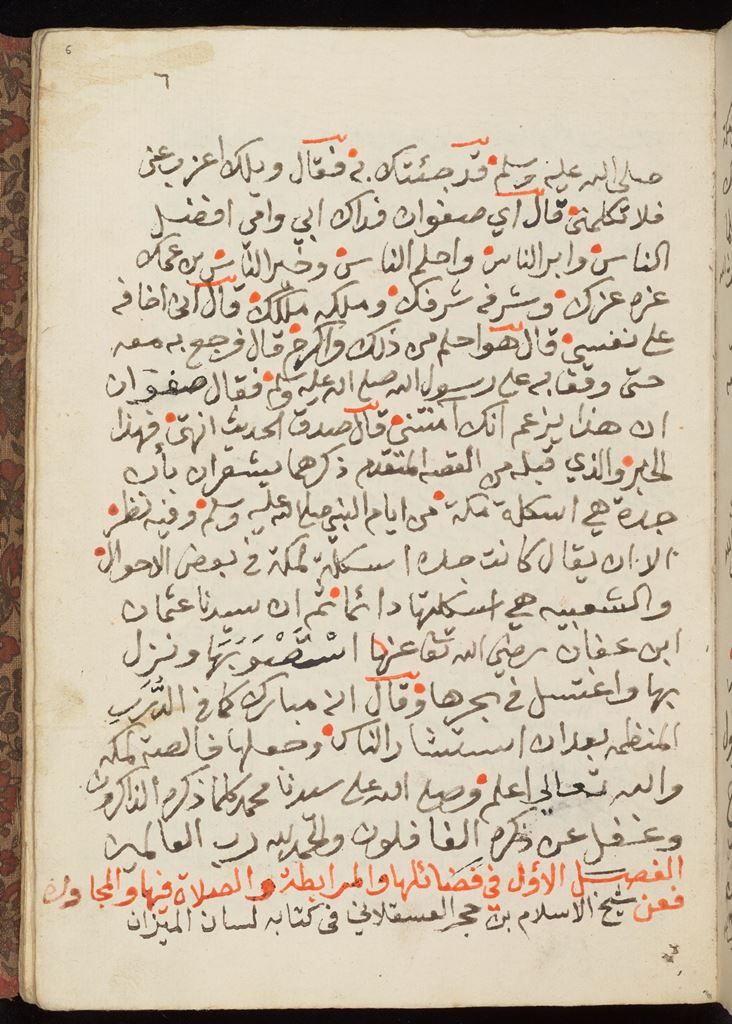 6
٦
صلى الله عليه وسلم قد جئتك به فقال ويلك اعزب عني
فلا تكلمني قال اي صفوان فداك ابي وامي افضل
الناس وابر الناس واحلم الناس وخير الناس بن عمك
عزه عزك وشرفه شرفك وملكه ملكك قال اني اخافه
على نفسي قال هو احلم من ذلك واكرم قال فرجع به معه
حتى وقف به على رسول الله صلى الله عليه وسلم فقال صفوان
ان هذا يزعم انك امنتني قال صدق الحديث انتهى فهذا
الخبر والذي قبله من القصه المتقدم ذكرهما يشعران بأن
جدة هي اسكلة مكة من ايام النبي صلى الله عليه وسلم وفيه نظر
الا ان يقال كانت جده اسكلة لمكة في بعض الاحوال
والشعبيه هي اسكلتها دائما ثم ان سيدنا عثمان
ابن عفان رضي الله تعا عنها اسْتَصْوَبَهَا ونزل
بها واغتسل في بحرها وقال انه مبارك كما في الدُّرَرِ
المنظمه بعد ان استشار الناس وجعلها خالصة لمكه
والله تعالى اعلم وصلى الله على سيدنا محمد كلما ذكره الذاكرون
وغفل عن ذكره الغافلون والحمد لله رب العالمين
الفصل الاول في فضائلها والمرابطة والصلاة فيها والمجاورة
فعن شيخ الاسلام بن حجر العسقلاني في كتابه لسان الميزان